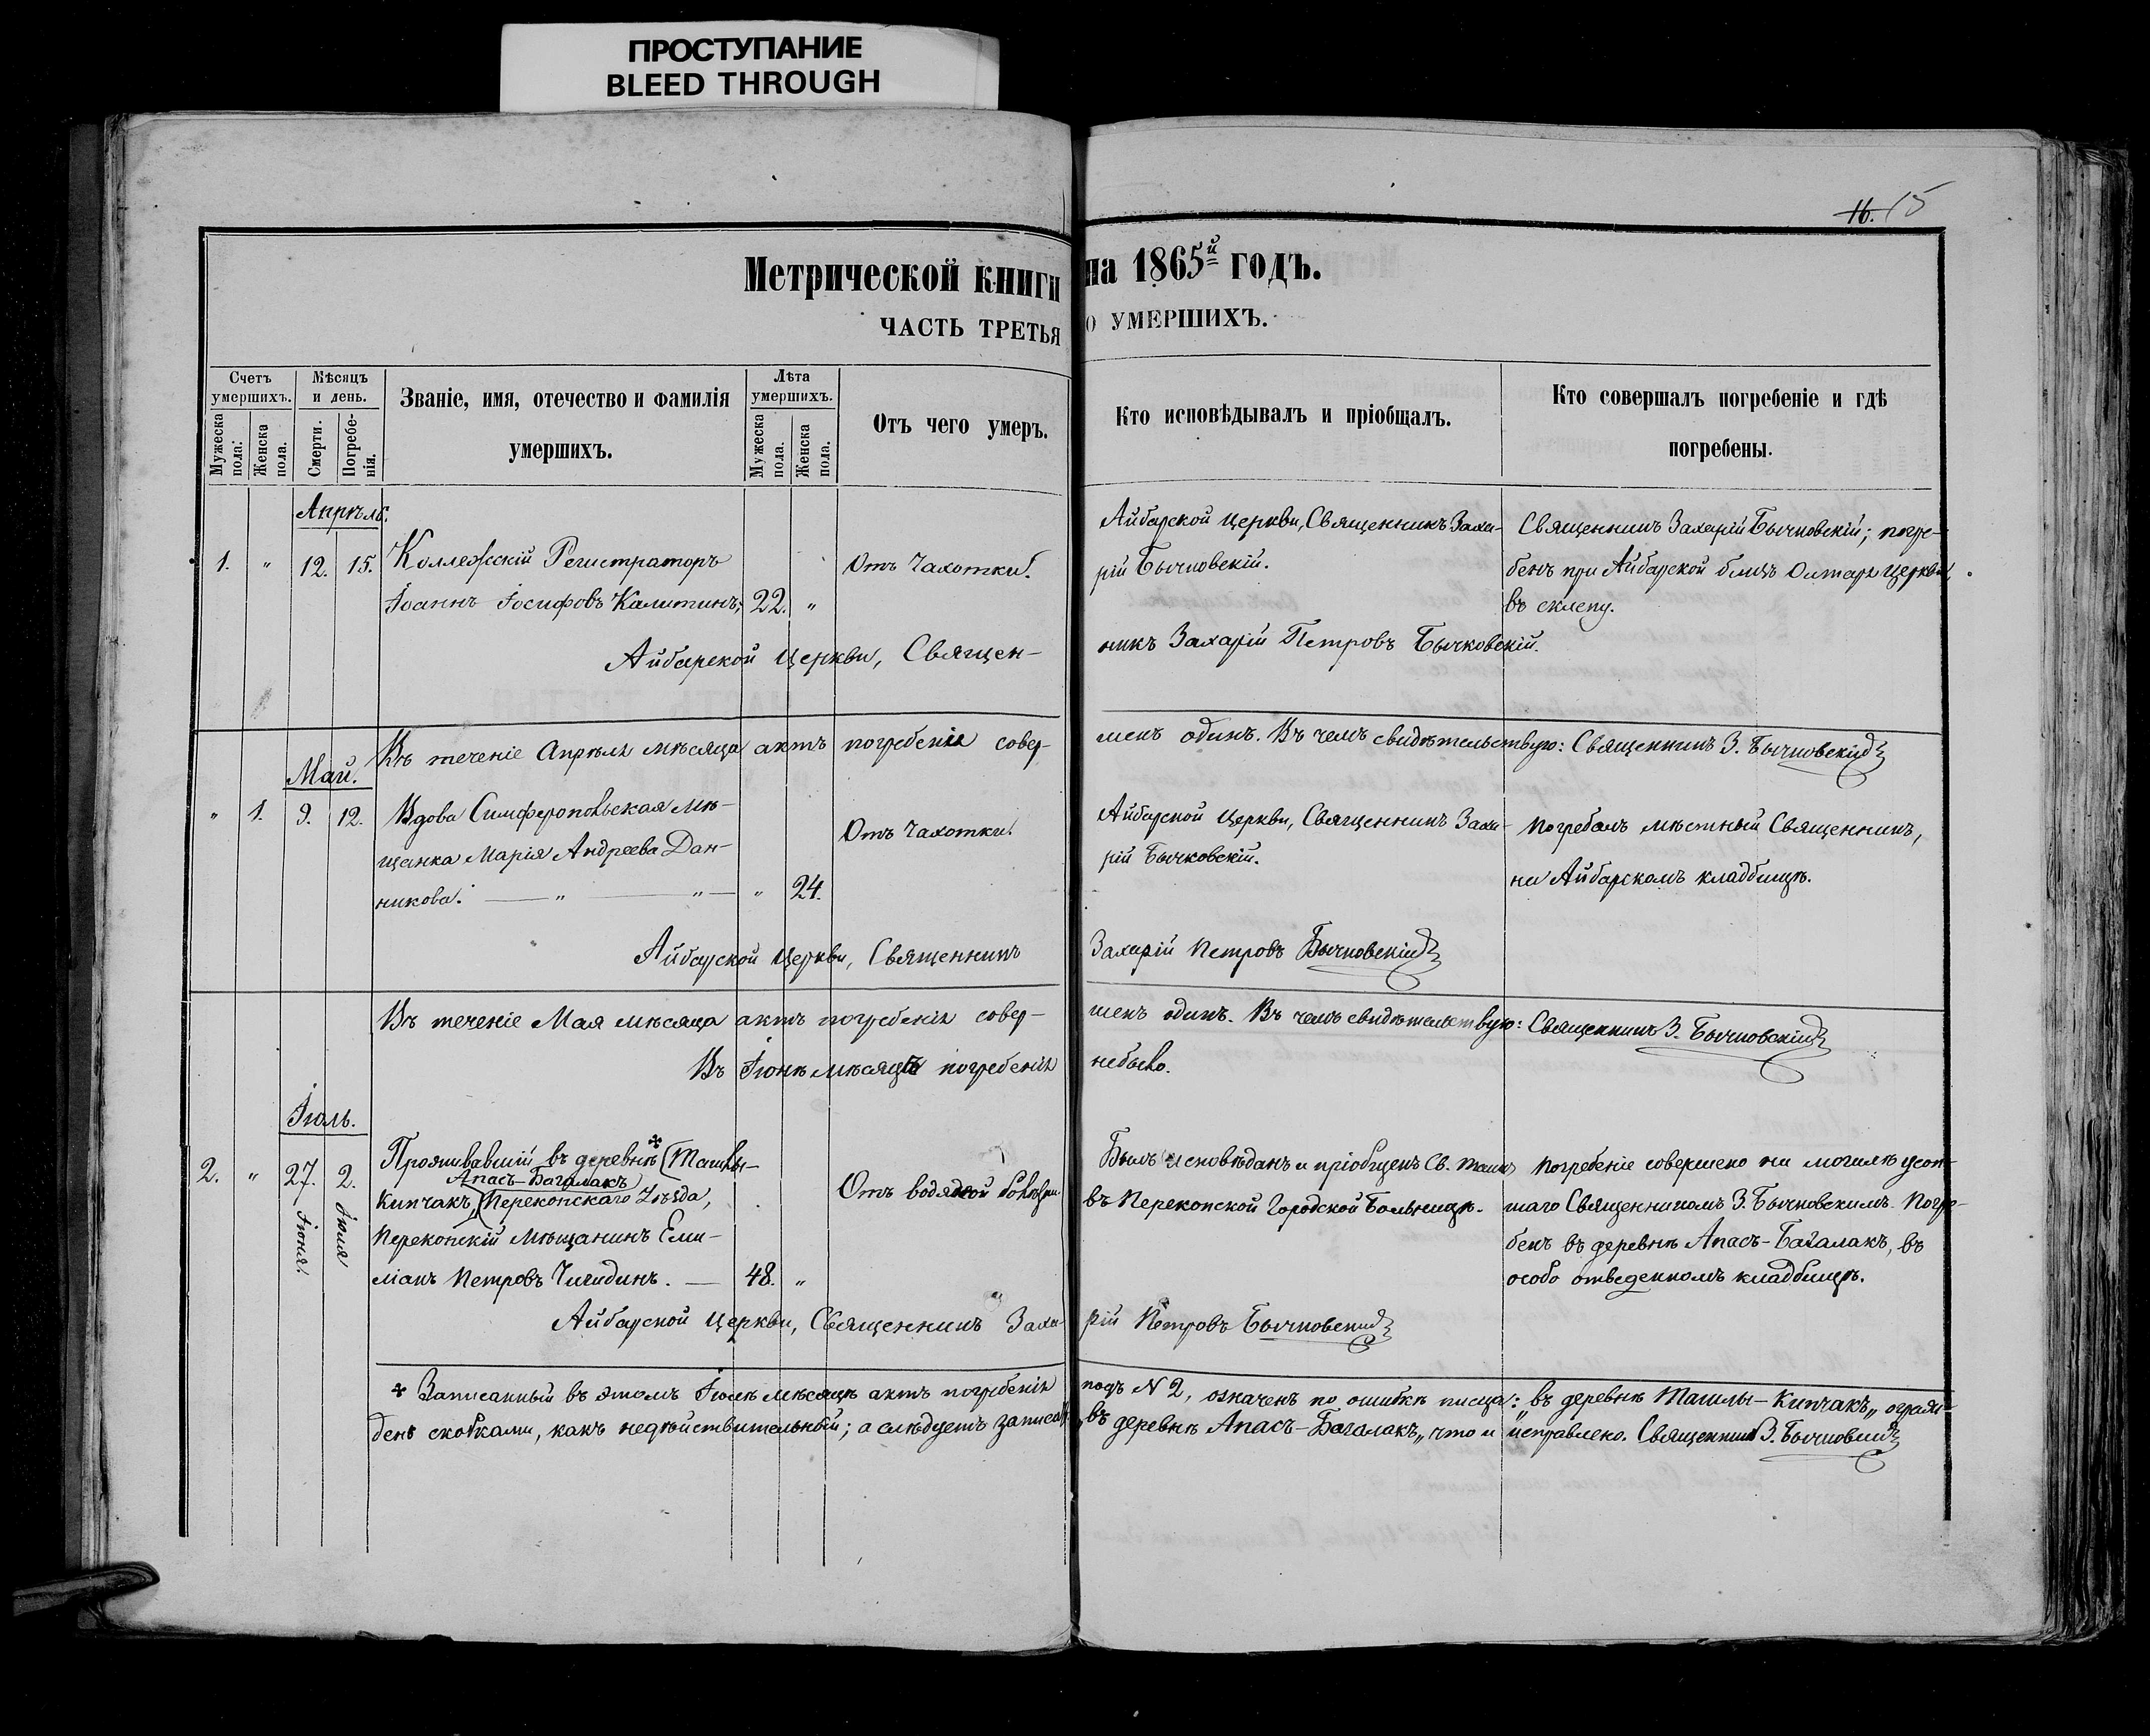 ПРОСТУПАНИЕ
BLEED THROUGH
16. 15
Метрической книги на 1865й годъ.
ЧАСТЬ ТРЕТЬЯ О УМЕРШИХЪ.
Счетъ умершихъ.
Мужеска пола.
Женска пола.
Мѣсяцъ и день.
Смерти.
Погребенія.
Званіе, имя, отечество и фамилія умершихъ.
Лѣта умершихъ.
Мужеска пола.
Женска пола.
Отъ чего умеръ.
Кто исповѣдывалъ и пріобщалъ.
Кто совершалъ погребеніе и гдѣ погребены.
Апрѣль.
1. „ 12. 15. Коллежскій Регистраторъ
Іоаннъ Іосифовъ Калитинъ; 22. „
Отъ Чахотки.
Айбарской Церкви, Священникъ Заха-
рій Бычковскій.
Священникъ Захарій Бычковскій; погре-
бенъ при Айбарской близъ Олтаря Церкви,
въ склепу.
Айбарской Церкви, Священ- никъ Захарій Петровъ Бычковскій.
Въ теченіе Апрѣля мѣсяца актъ погребенія совер- шенъ одинъ. Въ чемъ свидѣтельствую: Священникъ З. Бычковскій
Май.
„ 1. 9. 12. Вдова Симферопольская мѣ-
щанка Марія Андреева Дан-
никова. — „ — „ — „ 24.
Отъ Чахотки.
Айбарской Церкви, Священникъ Заха-
рій Бычковскій.
Погребалъ мѣстный Священникъ,
на Айбарскомъ кладбищѣ.
Айбарской Церкви, Священникъ Захарій Петровъ Бычковскій
Въ теченіе Мая мѣсяца актъ погребенія совер- шенъ одинъ. Въ чемъ свидѣтельствую: Священникъ З. Бычковскій
Въ Іюнѣ мѣсяцѣ погребенія небыло.
Іюль.
2. „ 27. Іюня. 2. Іюля
Проживавшій въ деревнѣ (Ташлы-
Апасъ-Багалакъ
Кипчакъ,) Перекопскаго Уѣзда,
Перекопскій мѣщанинъ Еми-
ліанъ Петровъ Чигидинъ. — 48. „
Отъ водяной болѣзни
Былъ исповѣданъ и пріобщенъ Св. Таинъ
въ Перекопской Городской Больницѣ.
Погребеніе совершено на могилѣ усоп-
шаго Священникомъ З. Бычковскимъ. Погре-
бенъ въ деревнѣ Апасъ-Багалакъ, въ
особо отведенномъ кладбищѣ.
Айбарской Церкви, Священникъ Заха- рій Петровъ Бычковскій
Записанный въ этомъ Іюлѣ мѣсяцѣ актъ погребенія подъ N 2, означенъ по ошибкѣ писца: „въ деревнѣ Ташлы-Кипчакъ„ ограж-
денъ скобками, какъ недѣйствительный; а слѣдуетъ записать „въ деревнѣ Апасъ-Багалакъ„ что и исправлено. Священникъ З. Бычковскій